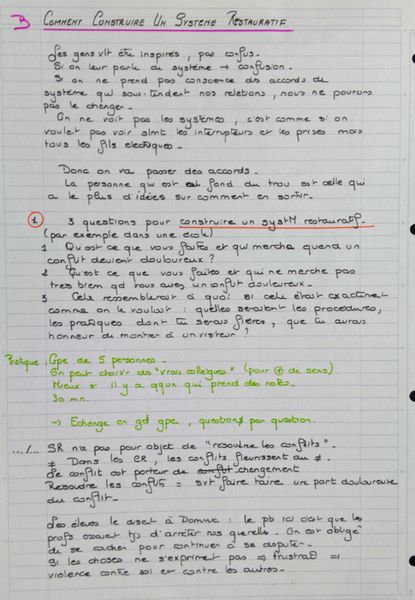 3 COMMENT CONSTRUIRE UN SYSTEME RESTAURATIF
Les gens vlt être inspirés, pas confus.
Si on leur parle du système → confusion.
Si on ne prend pas conscience des accords de
système qui sous-tendent nos relations, nous ne pouvons
pas le changer.
On ne voit pas les systèmes, c'est comme si on
voulait pas voir slmt les interrupteurs et les prises mais
tous les fils électriques.
Donc on va passer des accords.
La personne qui est au fond du trou est celle qui
a le plus d'idées sur comment en sortir.
1 3 questions pour construire un systM restauratif.
(par exemple dans une école)
1 Qu'est ce que vous faites et qui marche quand un
conflit devient douloureux ?
2 Qu'est ce que vous faites et qui ne marche pas
très bien qd vous avez un conflit douloureux.
3 Cela ressemblerait à quoi si cela était exactement
comme on le voulait : quelles seraient les procédures,
les pratiques dont tu serais fières, que tu aurais
honneur de montrer à un visiteur ?
Pratique : Gpe de 5 personnes.
On peut choisir des "vrais collègues" (pour ⊕ de sens)
Mieux si il y a qqun qui prend des notes.
30 mn.
→ Echange en gd gpe, question par question.
.../... SR n'a pas pour objet de "résoudre les conflits".
≠ Dans les CR, les conflits fleurissent au ≠.
Le conflit est porteur de changement
Résoudre les conflits = svt faire taire une part douloureuse
du conflit.
Les élèves le disent à Dominic : le pb ici c'est que les
profs essaient tjs d'arrêter nos querelles. On est obligé
de se cacher pour continuer à se disputer.
Si les choses ne s'expriment pas ⇒ frustrat° ⇒
violence contre soi et contre les autres.